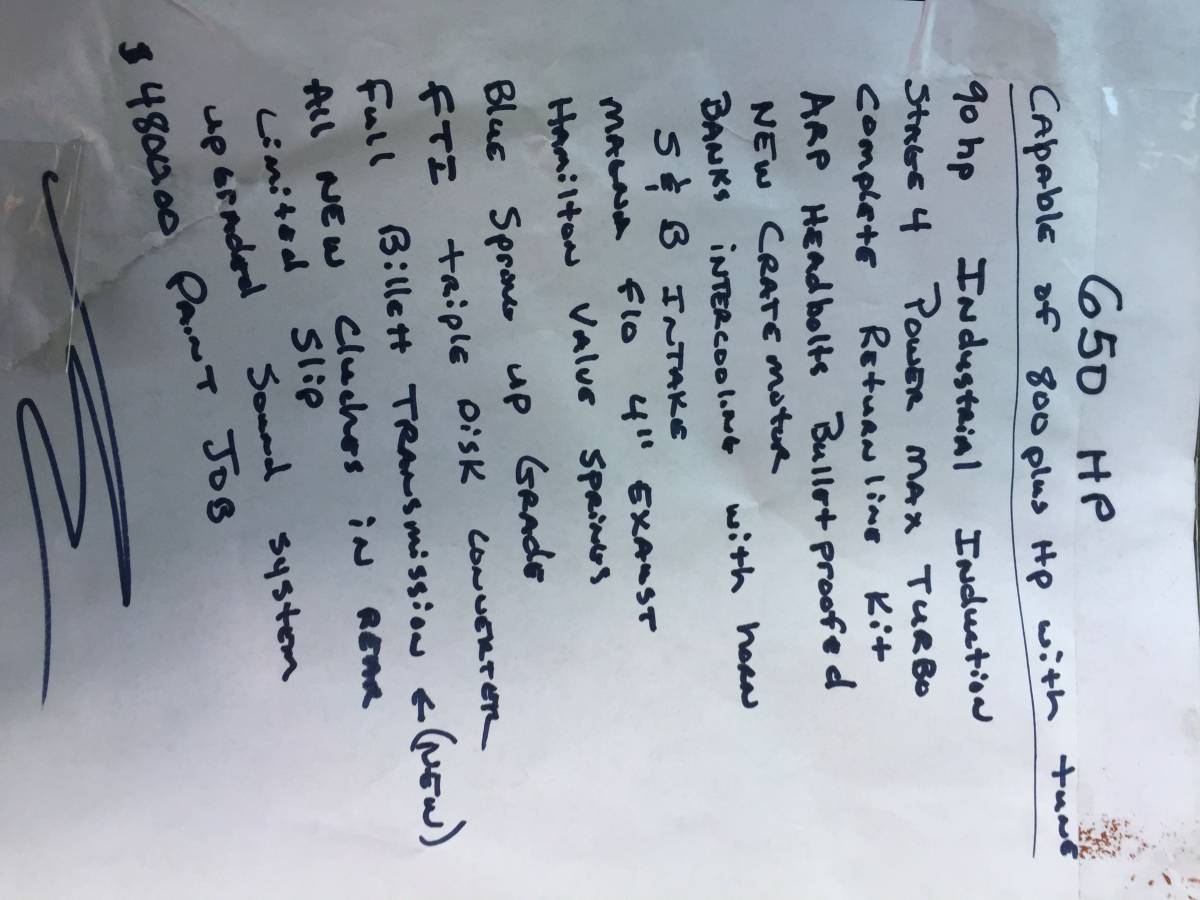 650 HP
CApable of 800 plus Hp with tune
90hp INdustrial INduction
STAGE 4 POWER MAX TURBO
Complete Return line Kit
ARP HEAdbolts Bulletproofed
NEW CRATE motor
BANKS iNTERCOOLiNG with horN
S & B INTAKE
MAGNA flo 4" EXAUST
HAmiltoN VALVE SPRiNGS
BLUE SpriNG up GRAdE
FTI triplE DiSK CONVERTER
Full Billett TRANSmissioN ← (NEW)
All NEW Cluches iN REAR
Limited Slip
upGraded Sound system
$4800.00 PaiNT JOB